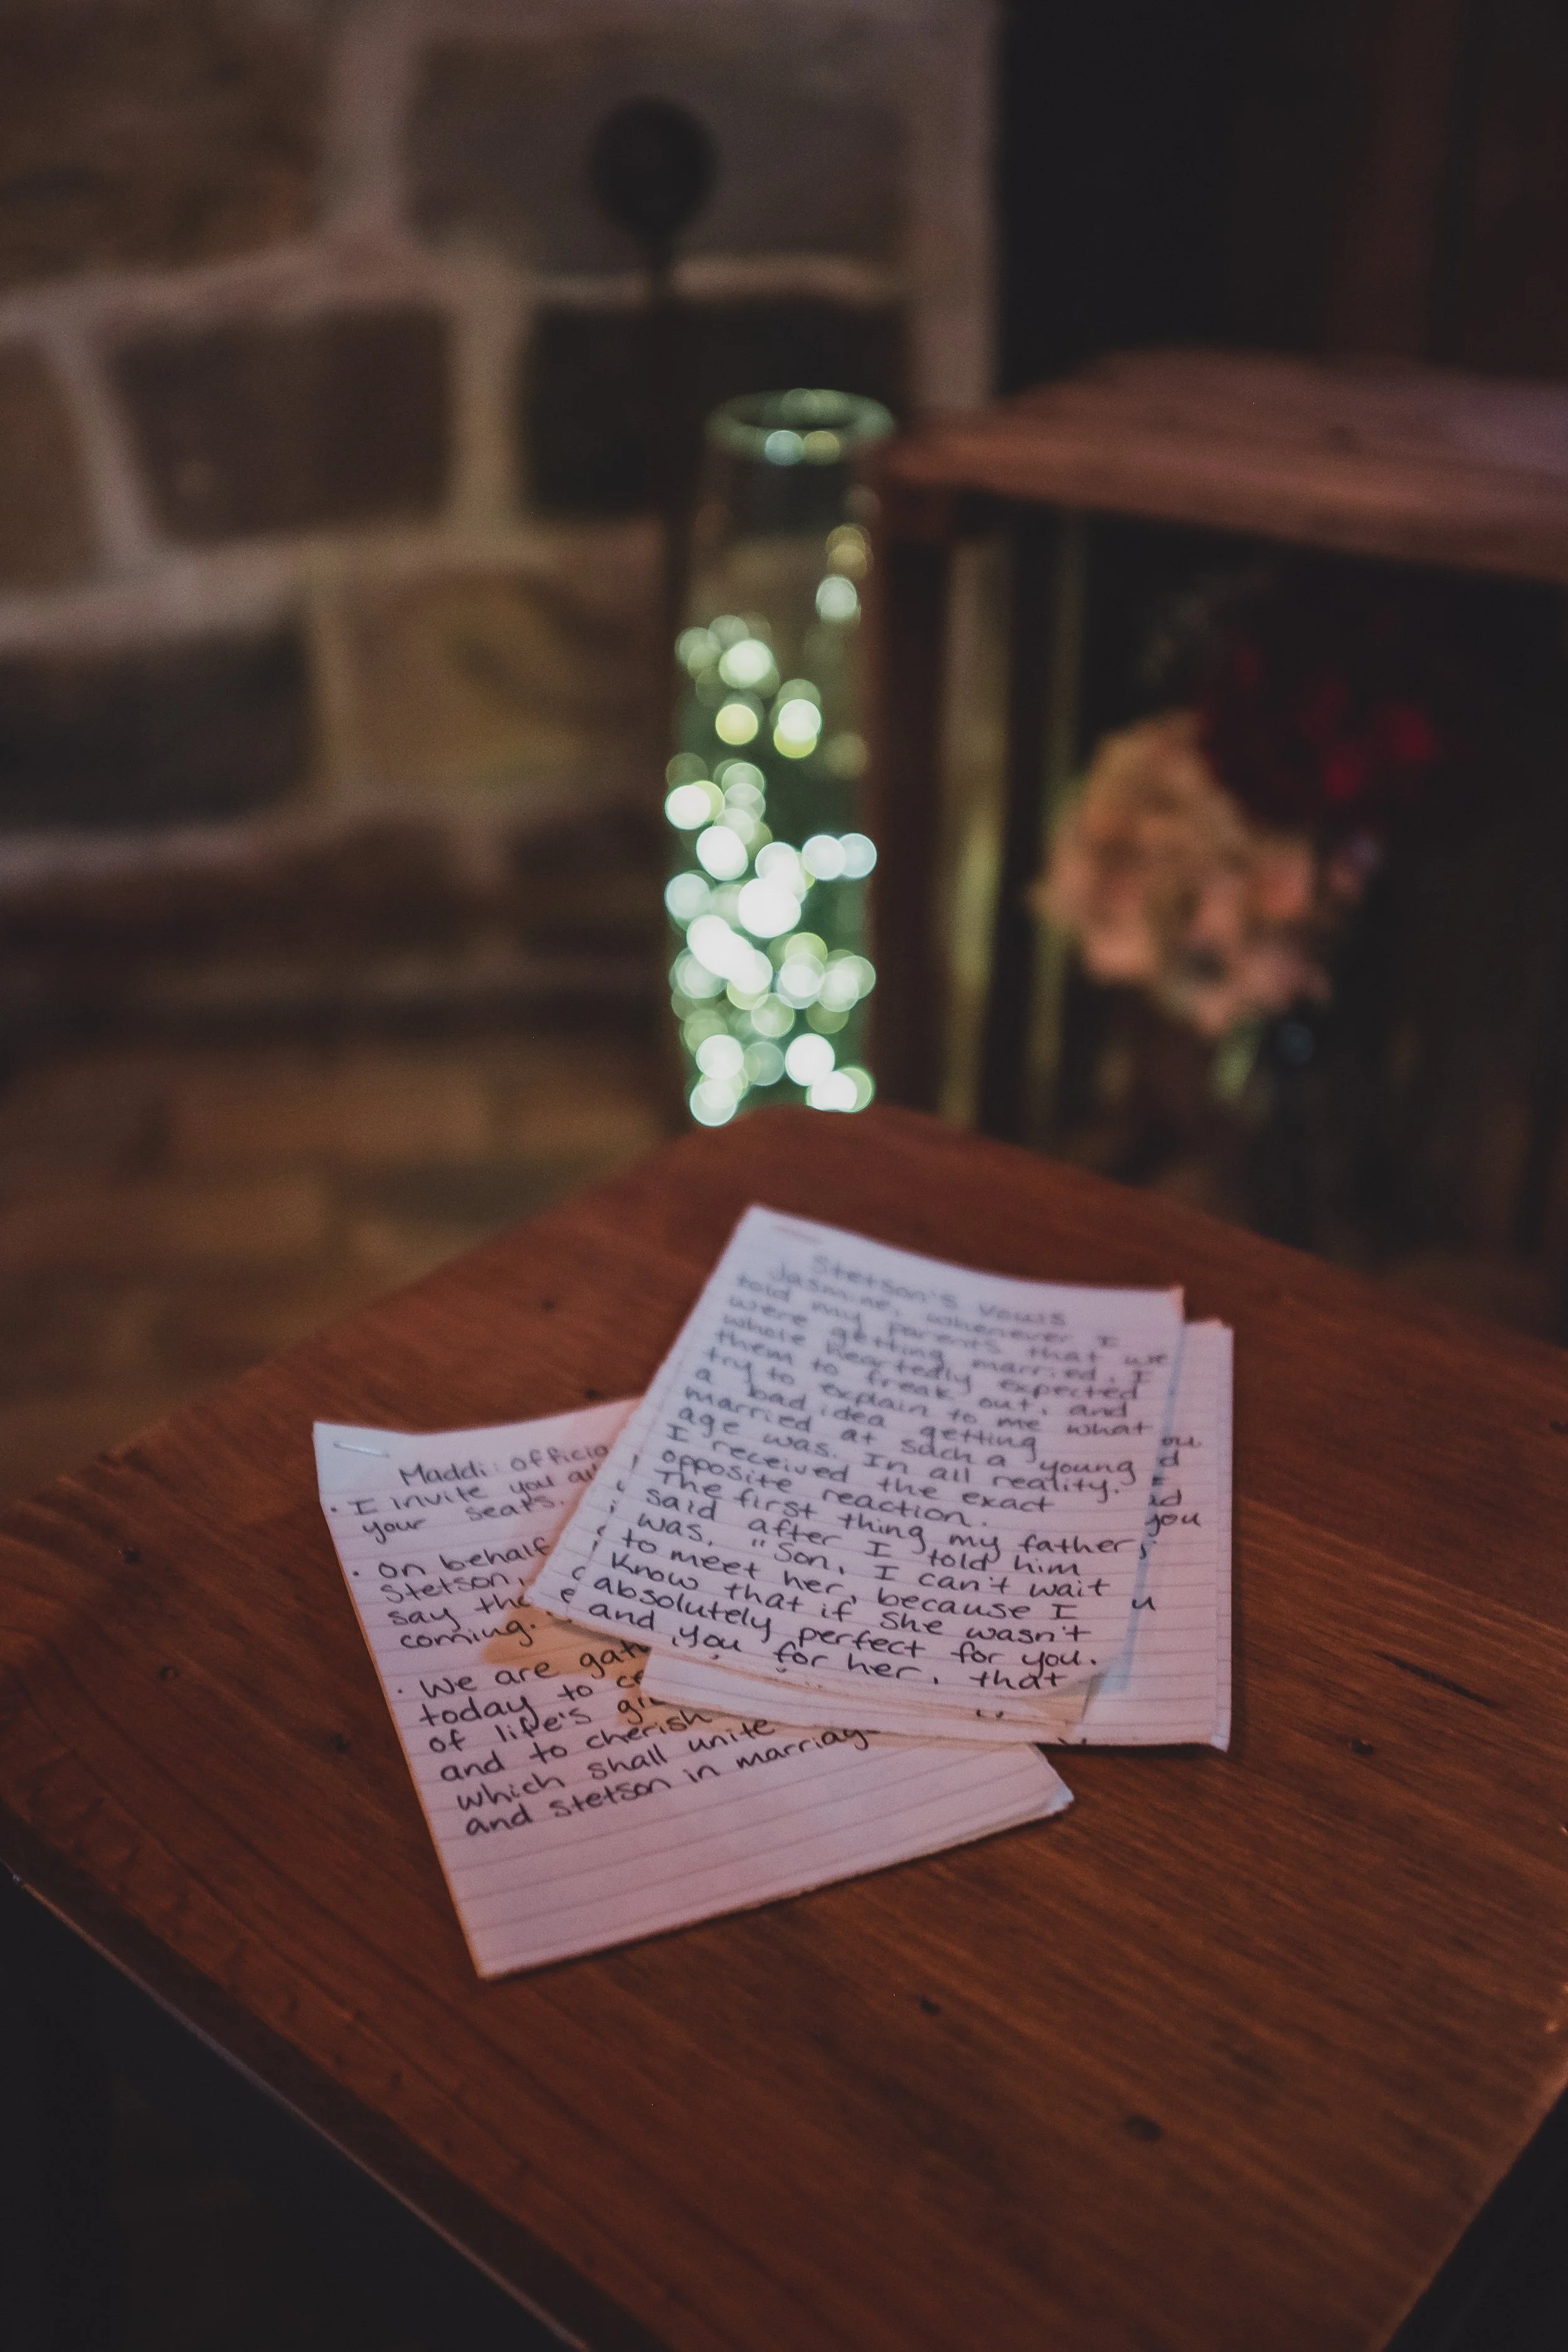 Stetson's Vows
Jasmine, whenever I
told my parents that we
were getting married, I
whole heartedly expected
them to freak out, and
try to explain to me what
a bad idea getting
married at such a young
age was. In all reality,
I received the exact
opposite reaction.
The first thing my father
said after I told him
was, "Son, I can't wait
to meet her, because I
know that if she wasn't
absolutely perfect for you.
and you for her, that
Maddi: officia
• I invite you all
your seats.
• On behalf
Stetson,
say tha
coming.
• We are gath
today to ce
of life's gr
and to cherish
which shall unite
and Stetson in marriag
ou.
d
I
ad
you
u